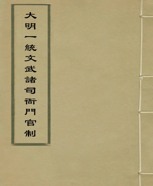 大明一統文武諸司衙門官制